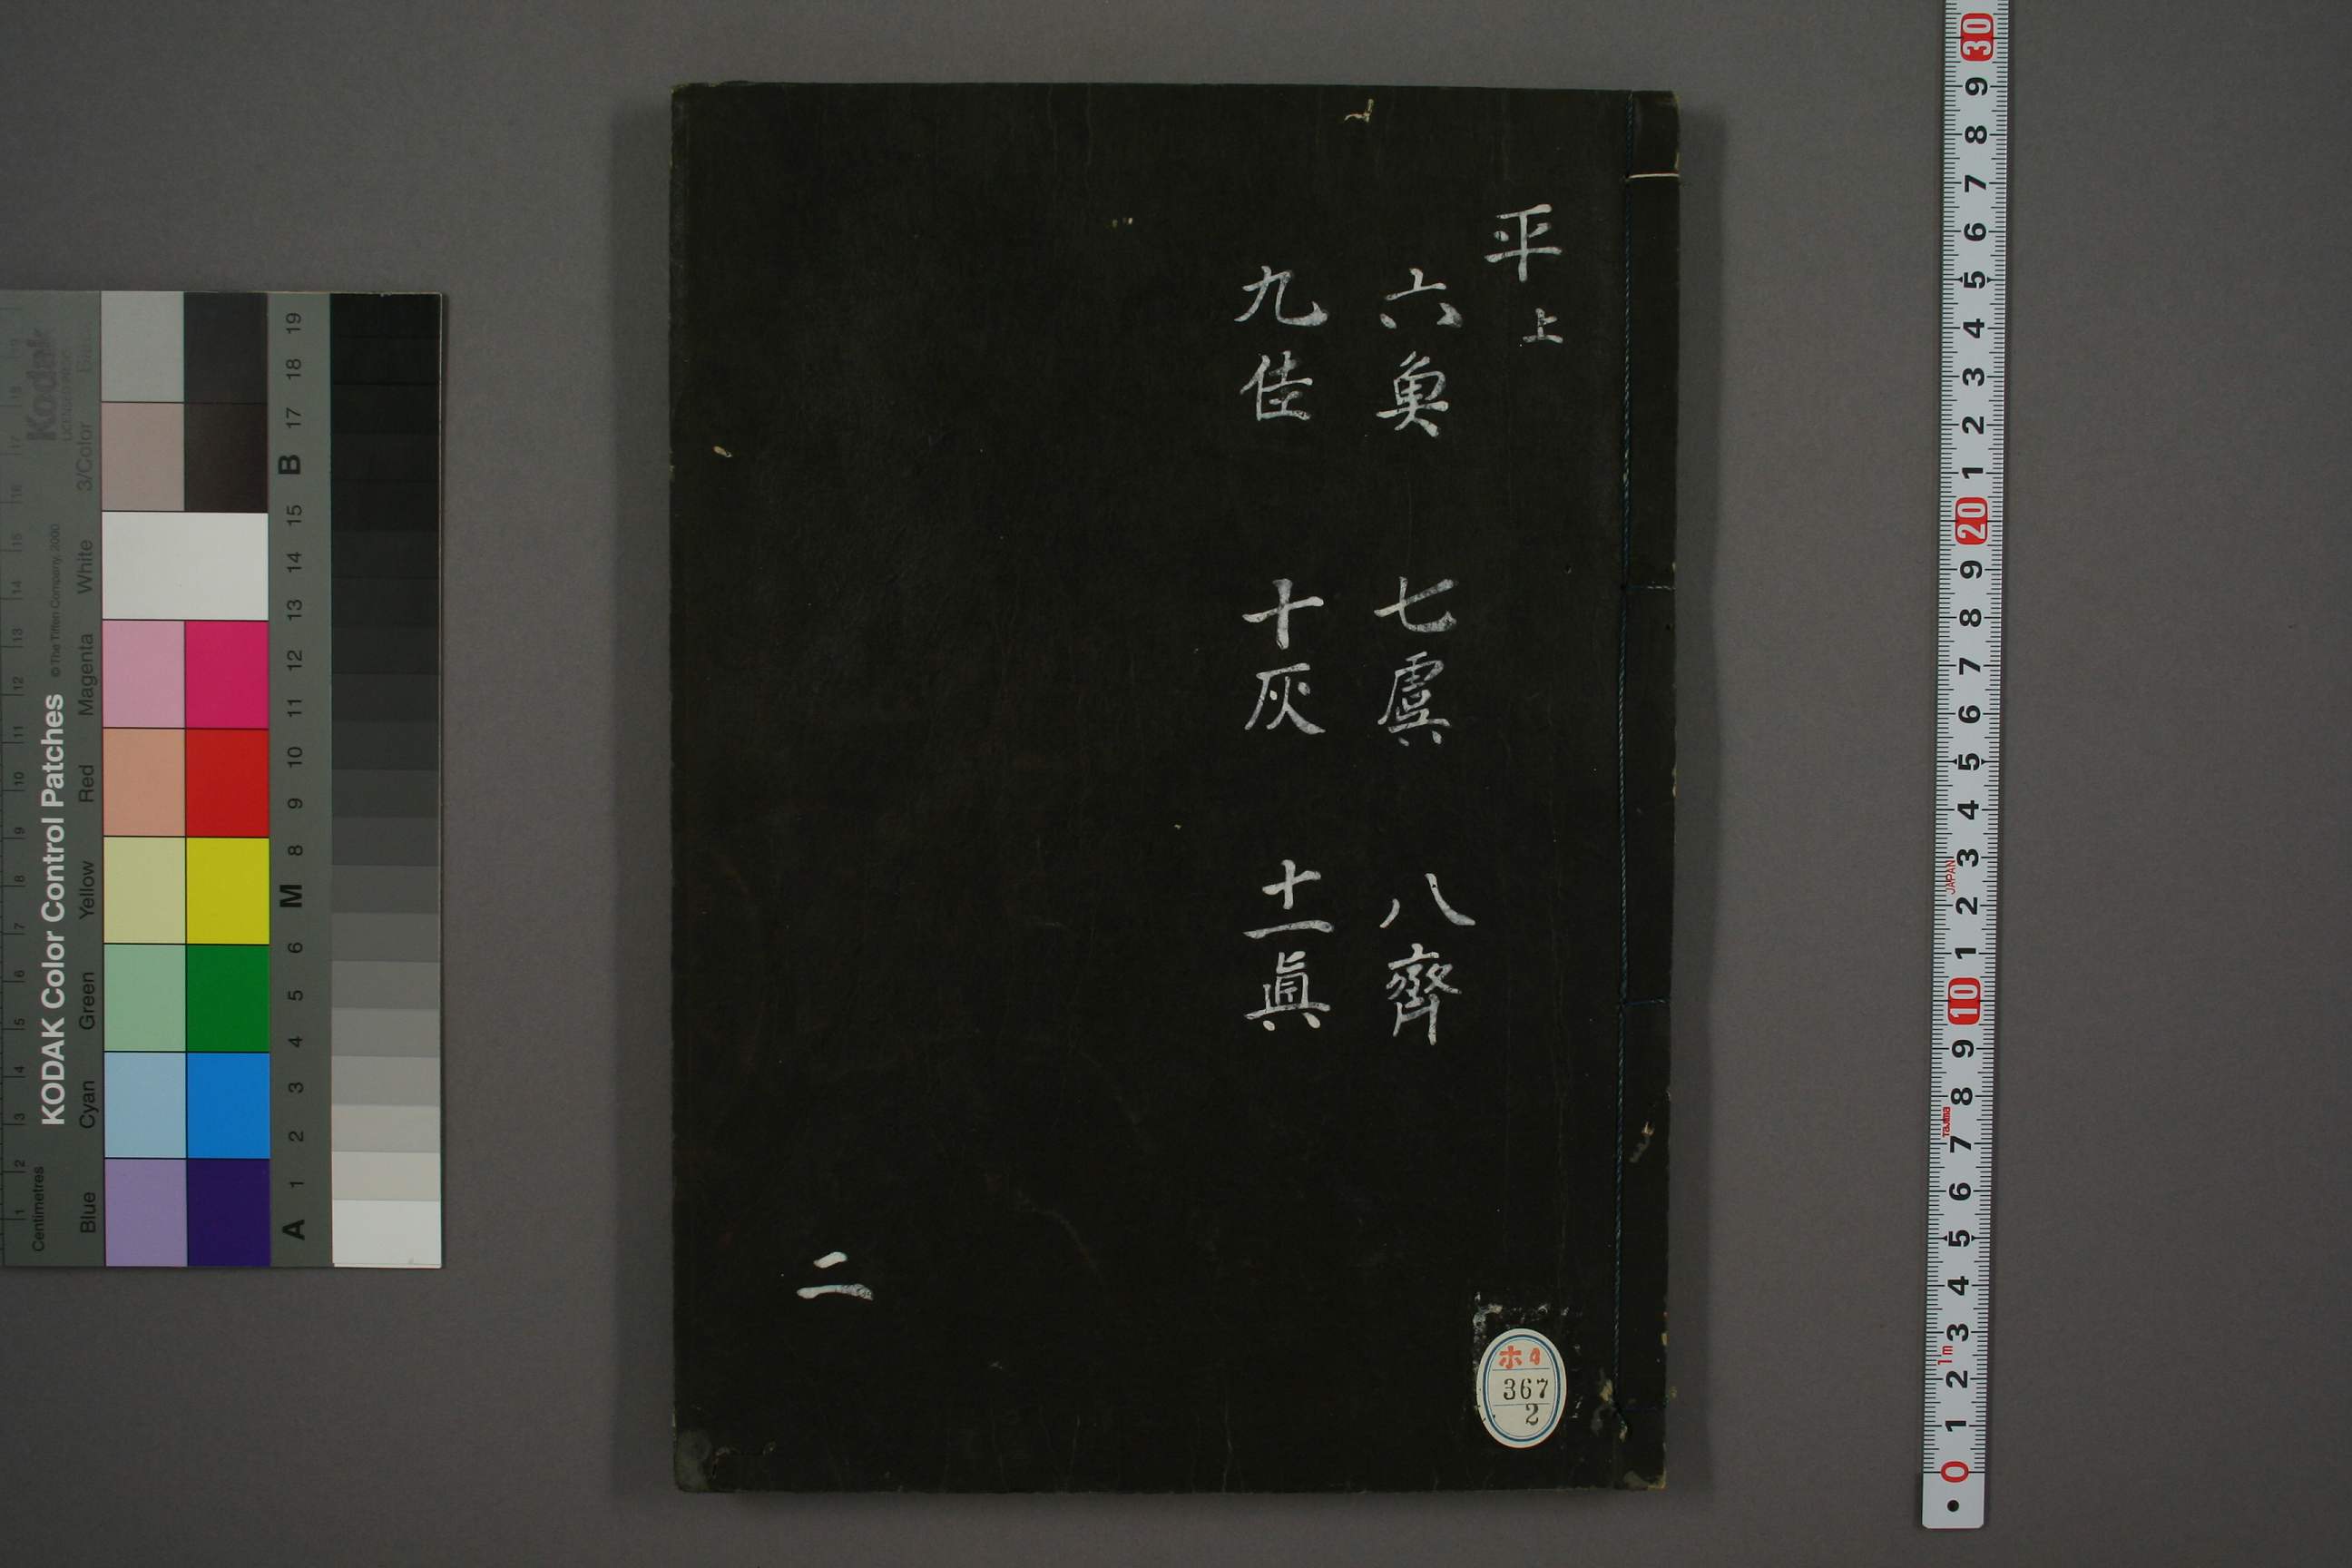 平 上
六魚 七虞 八齊
九佳 十灰 十一眞
二
ホ4
367
2
KODAK Color Control Patches
© The Tiffen Company, 2000
Kodak
LICENSED PRODUCT
Centimetres
Blue Cyan Green Yellow Red Magenta White 3/Color
1 2 3 4 5 6 7 8 9 10 11 12 13 14 15 16 17 18 19
A 1 2 3 4 5 6 M 8 9 10 11 12 13 14 15 B 17 18 19
30 9 8 7 6 5 4 3 2 1 20 9 8 7 6 5 4 3 2 1 10 9 8 7 6 5 4 3 2 1 0
JAPAN
Tajima
1m